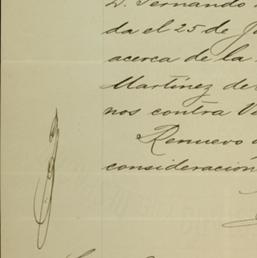 D. Fernando
da el 25 de
acerca de la
Martínez de
nos contra
Renuevo
consideración